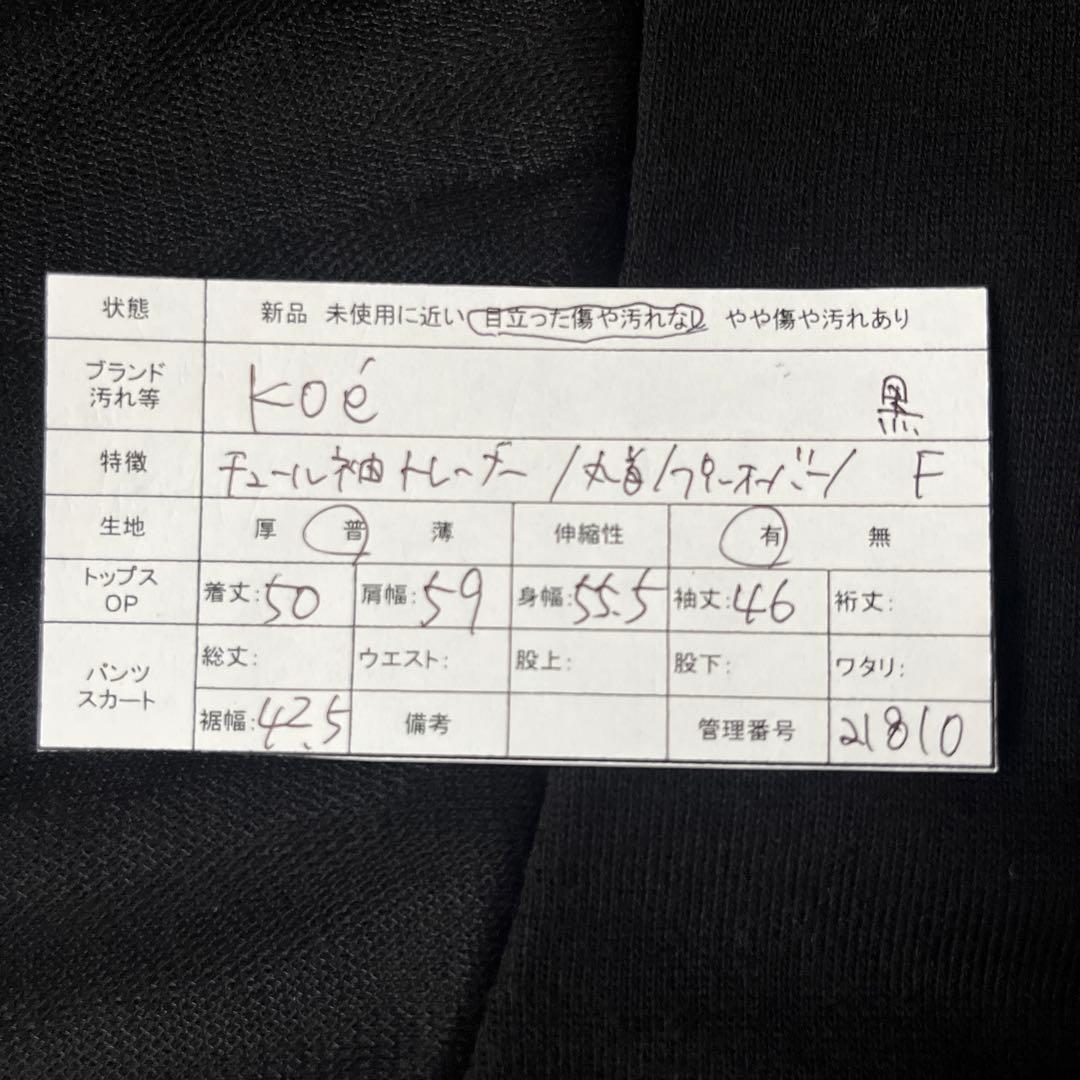 状態 新品 未使用に近い 目立った傷や汚れなし やや傷や汚れあり
ブランド 汚れ等 koé 黒
特徴 チュール袖トレーナー/丸首/プルオーバー/ F
生地 厚 普 薄 伸縮性 有 無
トップス OP 着丈:50 肩幅:59 身幅:55.5 袖丈:46 裄丈:
パンツ スカート 総丈: ウエスト: 股上: 股下: ワタリ:
裾幅:42.5 備考 管理番号 21810